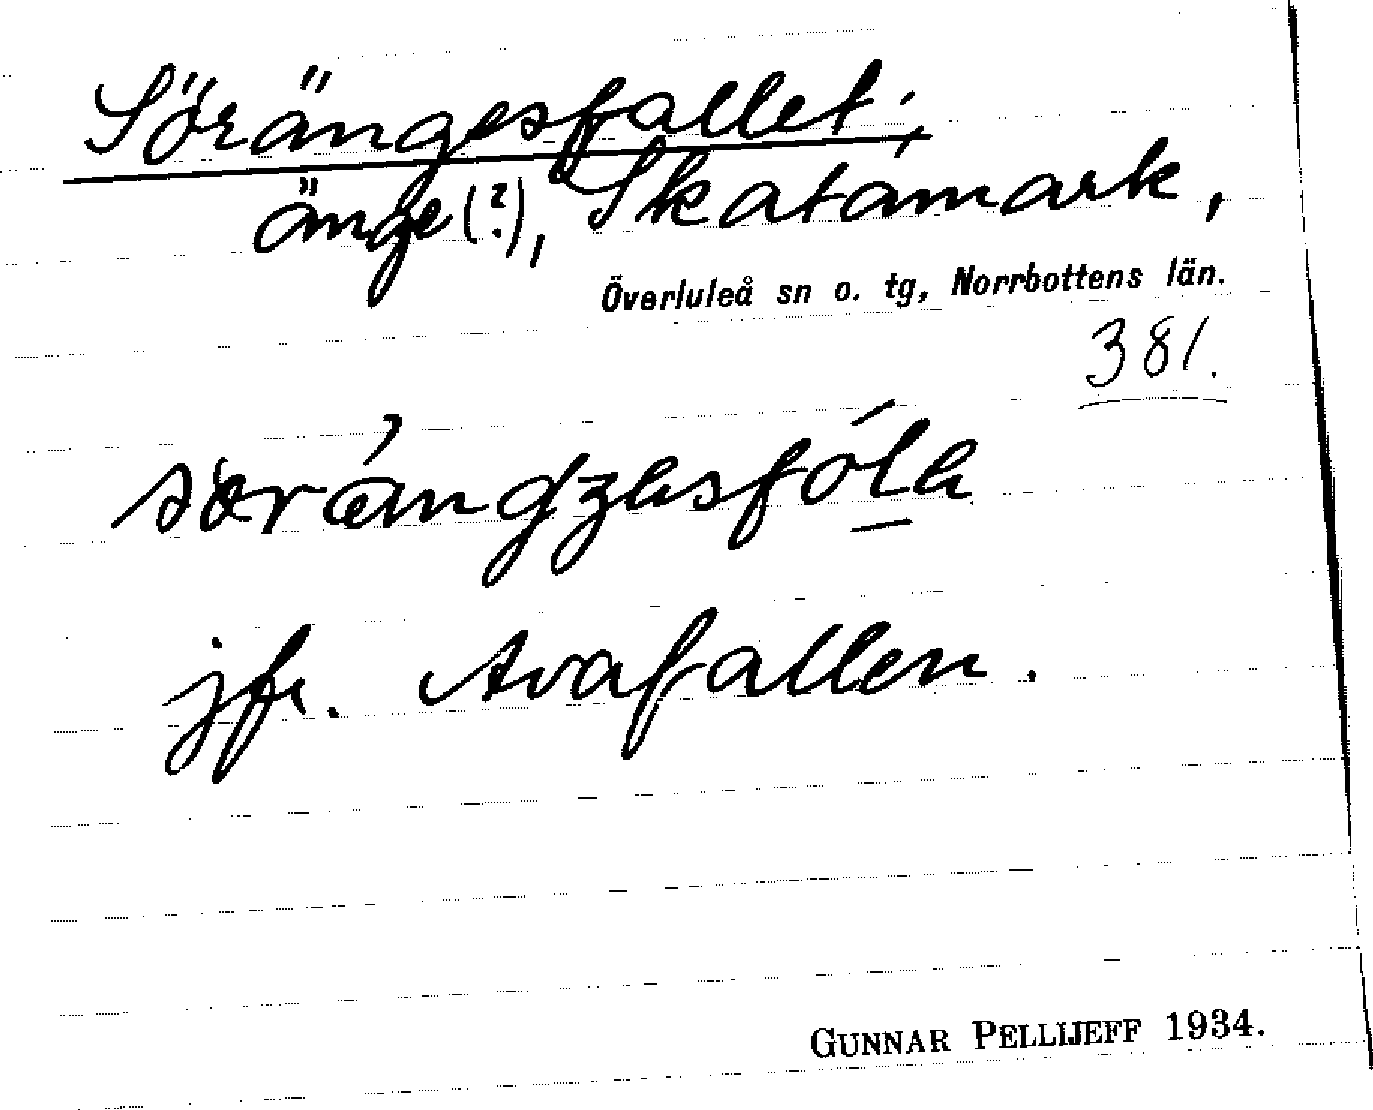 Sörängesfallet;
änge(?), Skatamark,
Överluleå sn o. tg, Norrbottens län.
381.
jfr. Avafallen.
GUNNAR PELLIJEFF 1934.